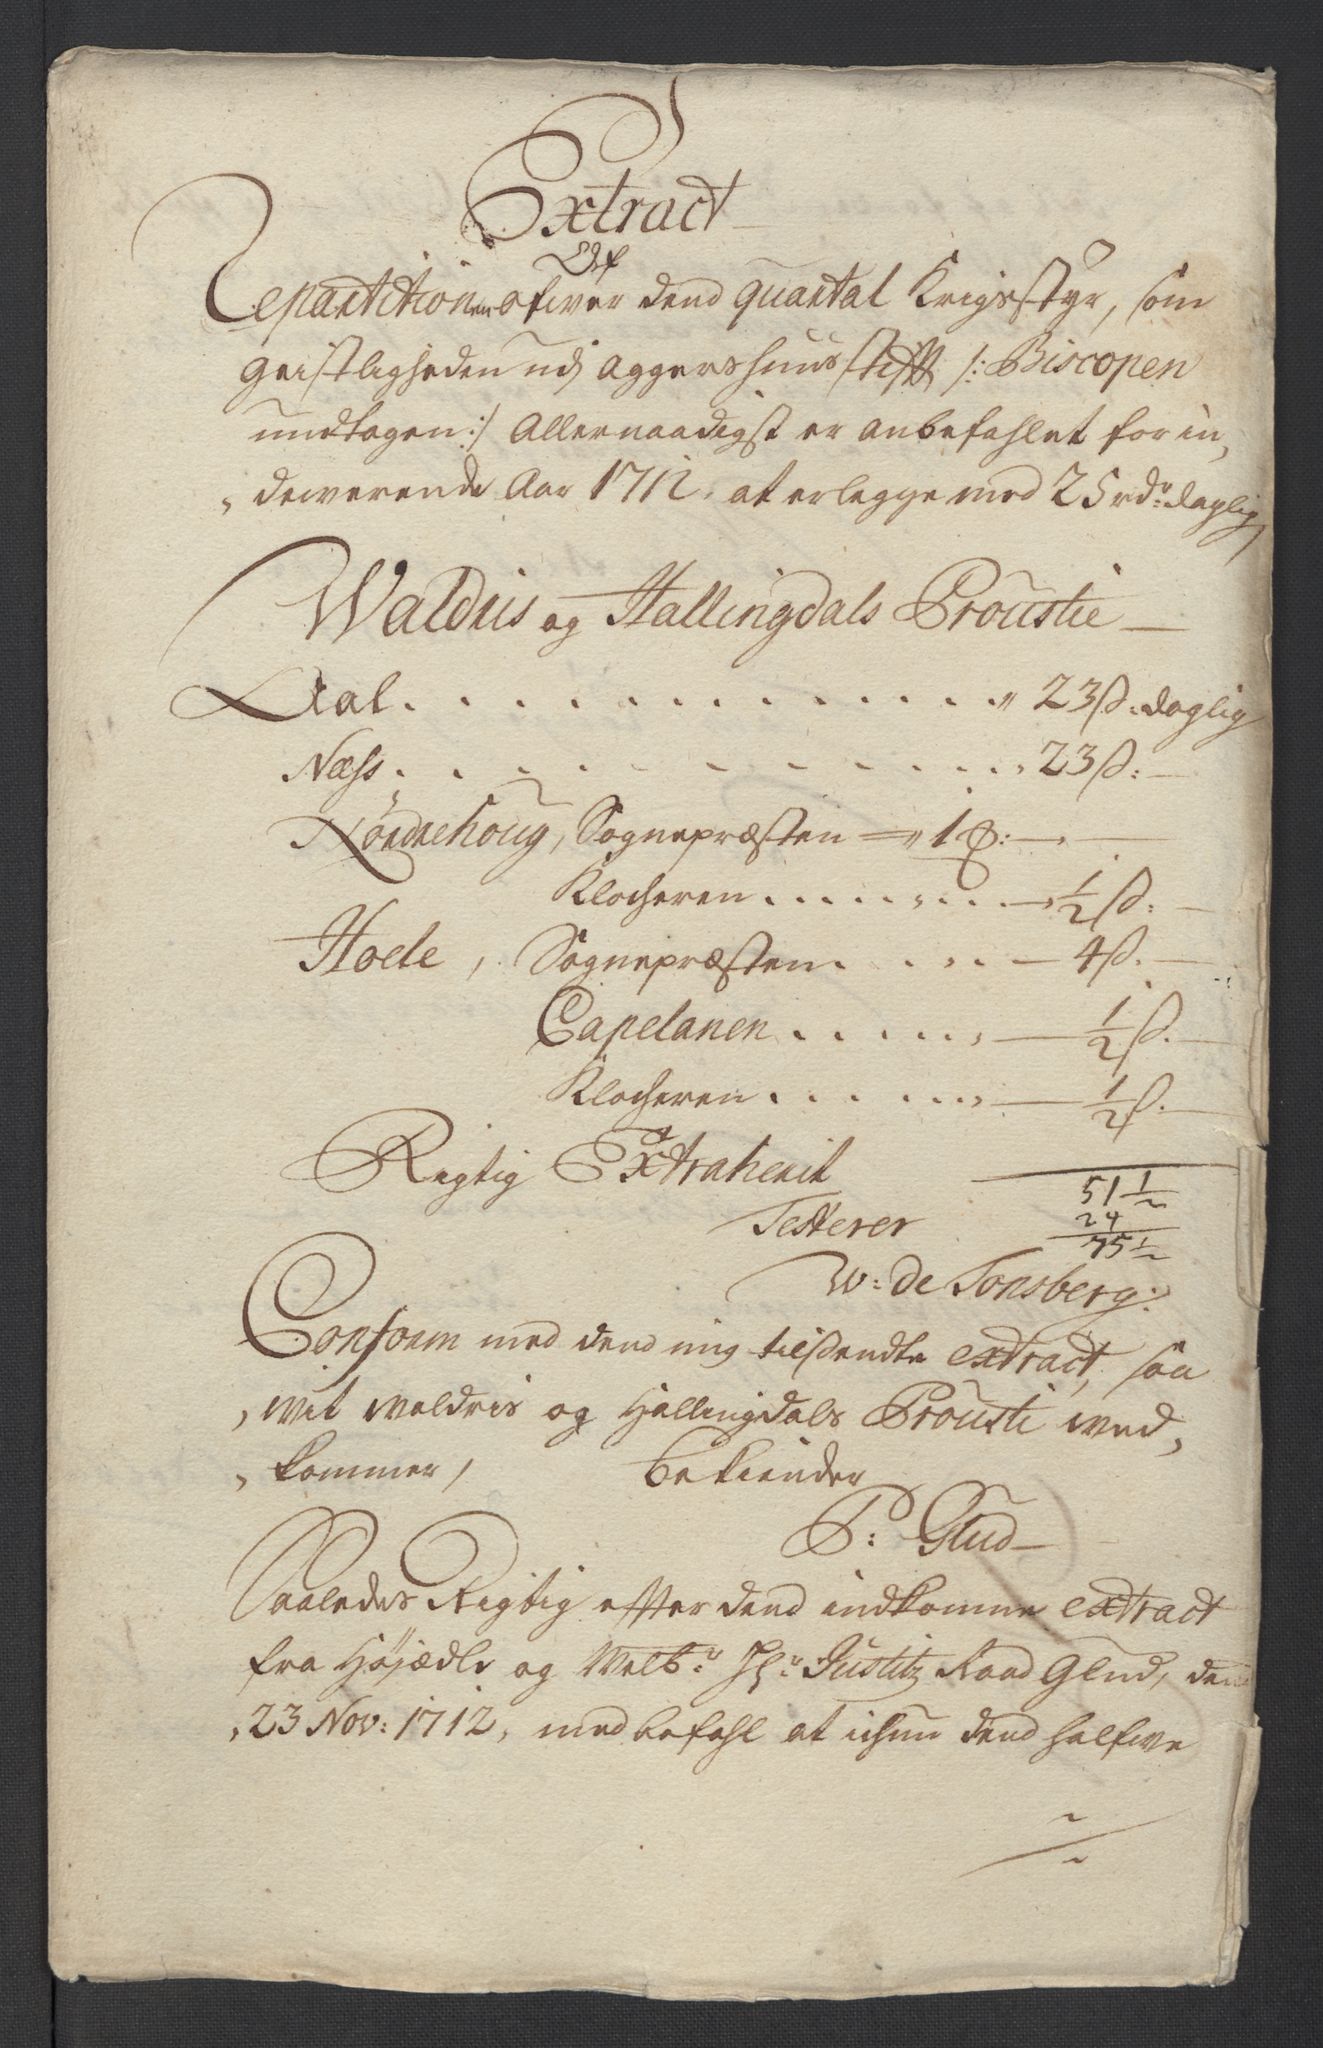 Extract
Af
Repartitionen ofwer dend quartal Krigsstyr, som
Geistligheden udj Aggershuus stifft /: Biscopen
undtagen :/ Allernaadigst er anbefahlet for in,
, dewerende Aar 1712, at erlegge med 25 rdr: daglig
Waldris og Hallingdals Proustie —
Aal . . . . . . . . . . . . . . „ 23 ß: daglig
Næss . . . . . . . . . . . . , 23 ß: —
Nordrehoug, Sognepræsten — „ 1 ℔: —
Klocheren . . . . . . . . . — ½ ß: —
Hoele, Sognepræsten . . . . . — 4 ß. —
Capelanen . . . . . . , — ½ ß. —
Klocheren . . . . . . . , — ½ ß. —
Rigtig Extraherit
51 ½
Testerer
24
75 ½
W: de Tonsberg:
Conform med dend mig tilsendte extract, saa
, wit Waldris og Hallingdals Prousti wed,
, kommer, bekiender
P: Glud —
Saaledes Rigtig effter dend indkomne extract
fra Høyædle og Welbr: Hr: Justitz Raad Glud, den
, 23 Nov: 1712, med befahl at dend halfwe